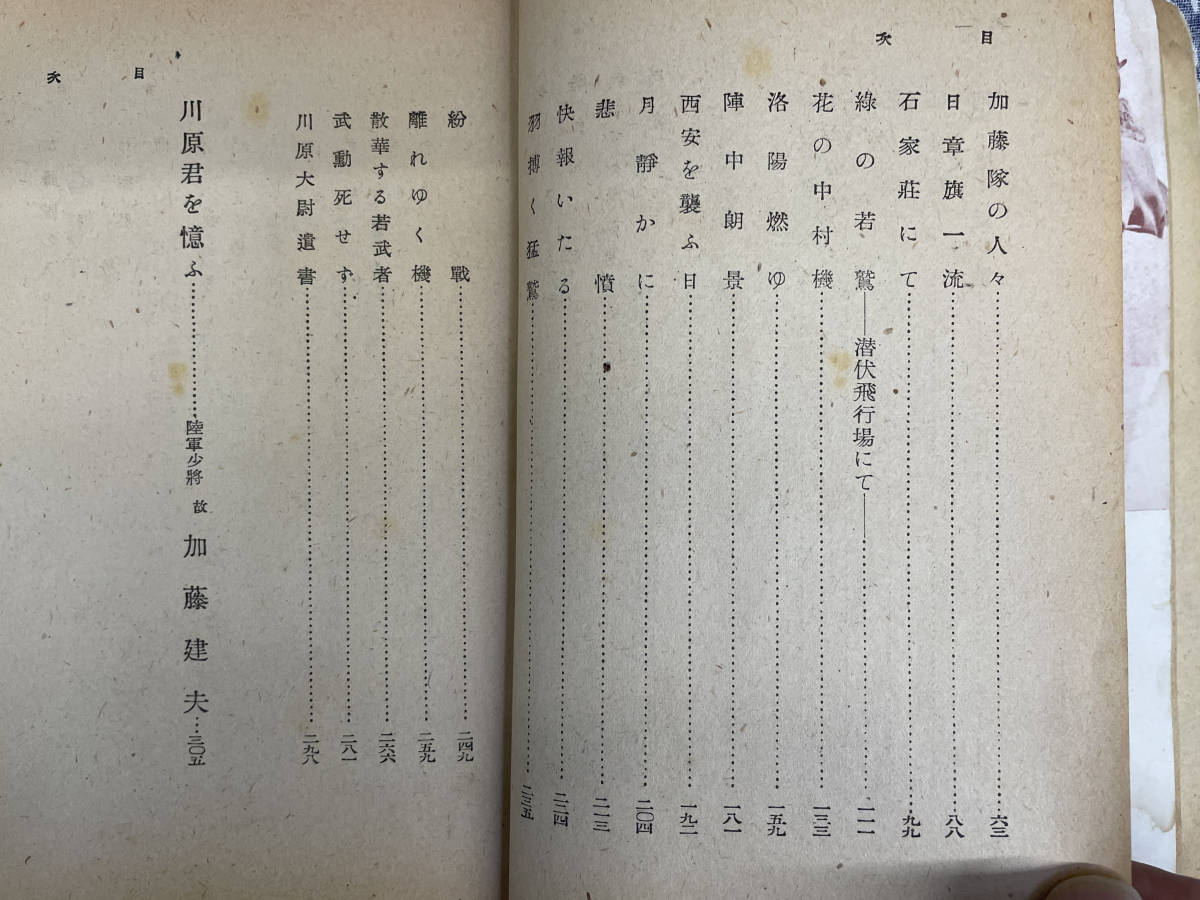 目次
加藤隊の人々……六三
日章旗一流……八八
石家莊にて……九九
綠の若鷲――潜伏飛行場にて――……一一一
花の中村機……一三三
洛陽燃ゆ……一五九
陣中朗景……一八一
西安を襲ふ日……一九二
月靜かに……二〇四
悲憤……二一三
快報いたる……二二四
羽搏く猛鷲……二三五
目次
紛戰……二四九
離れゆく機……二五九
散華する若武者……二六六
武勳死せず……二八一
川原大尉遺書……二九八
川原君を憶ふ……陸軍少將 故 加藤建夫…三〇五